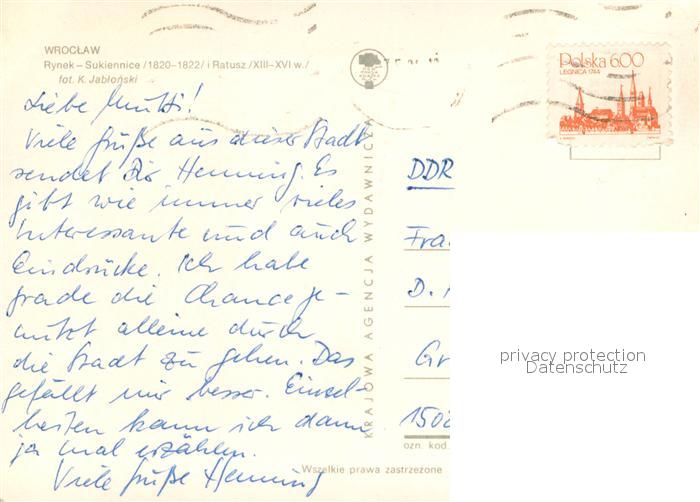 WROCŁAW
Rynek – Sukiennice /1820–1822/ i Ratusz /XIII–XVI w./
fot. K. Jabłoński
Polska 6.00
LEGNICA 1744
Liebe Mutti!
Viele Grüße aus dieser Stadt
sendet Dir Henning. Es
gibt wie immer vieles
Interessante und auch
Eindrücke. Ich habe
grade die Chance ge-
nutzt alleine durch
die Stadt zu gehen. Das
gefällt mir besser. Einzel-
heiten kann ich dann
ja mal erzählen.
Viele Grüße Henning
KRAJOWA AGENCJA WYDAWNICZA
DDR
Fra
D.
Gr
150
ozn. kod.
Wszelkie prawa zastrzeżone
privacy protection
Datenschutz